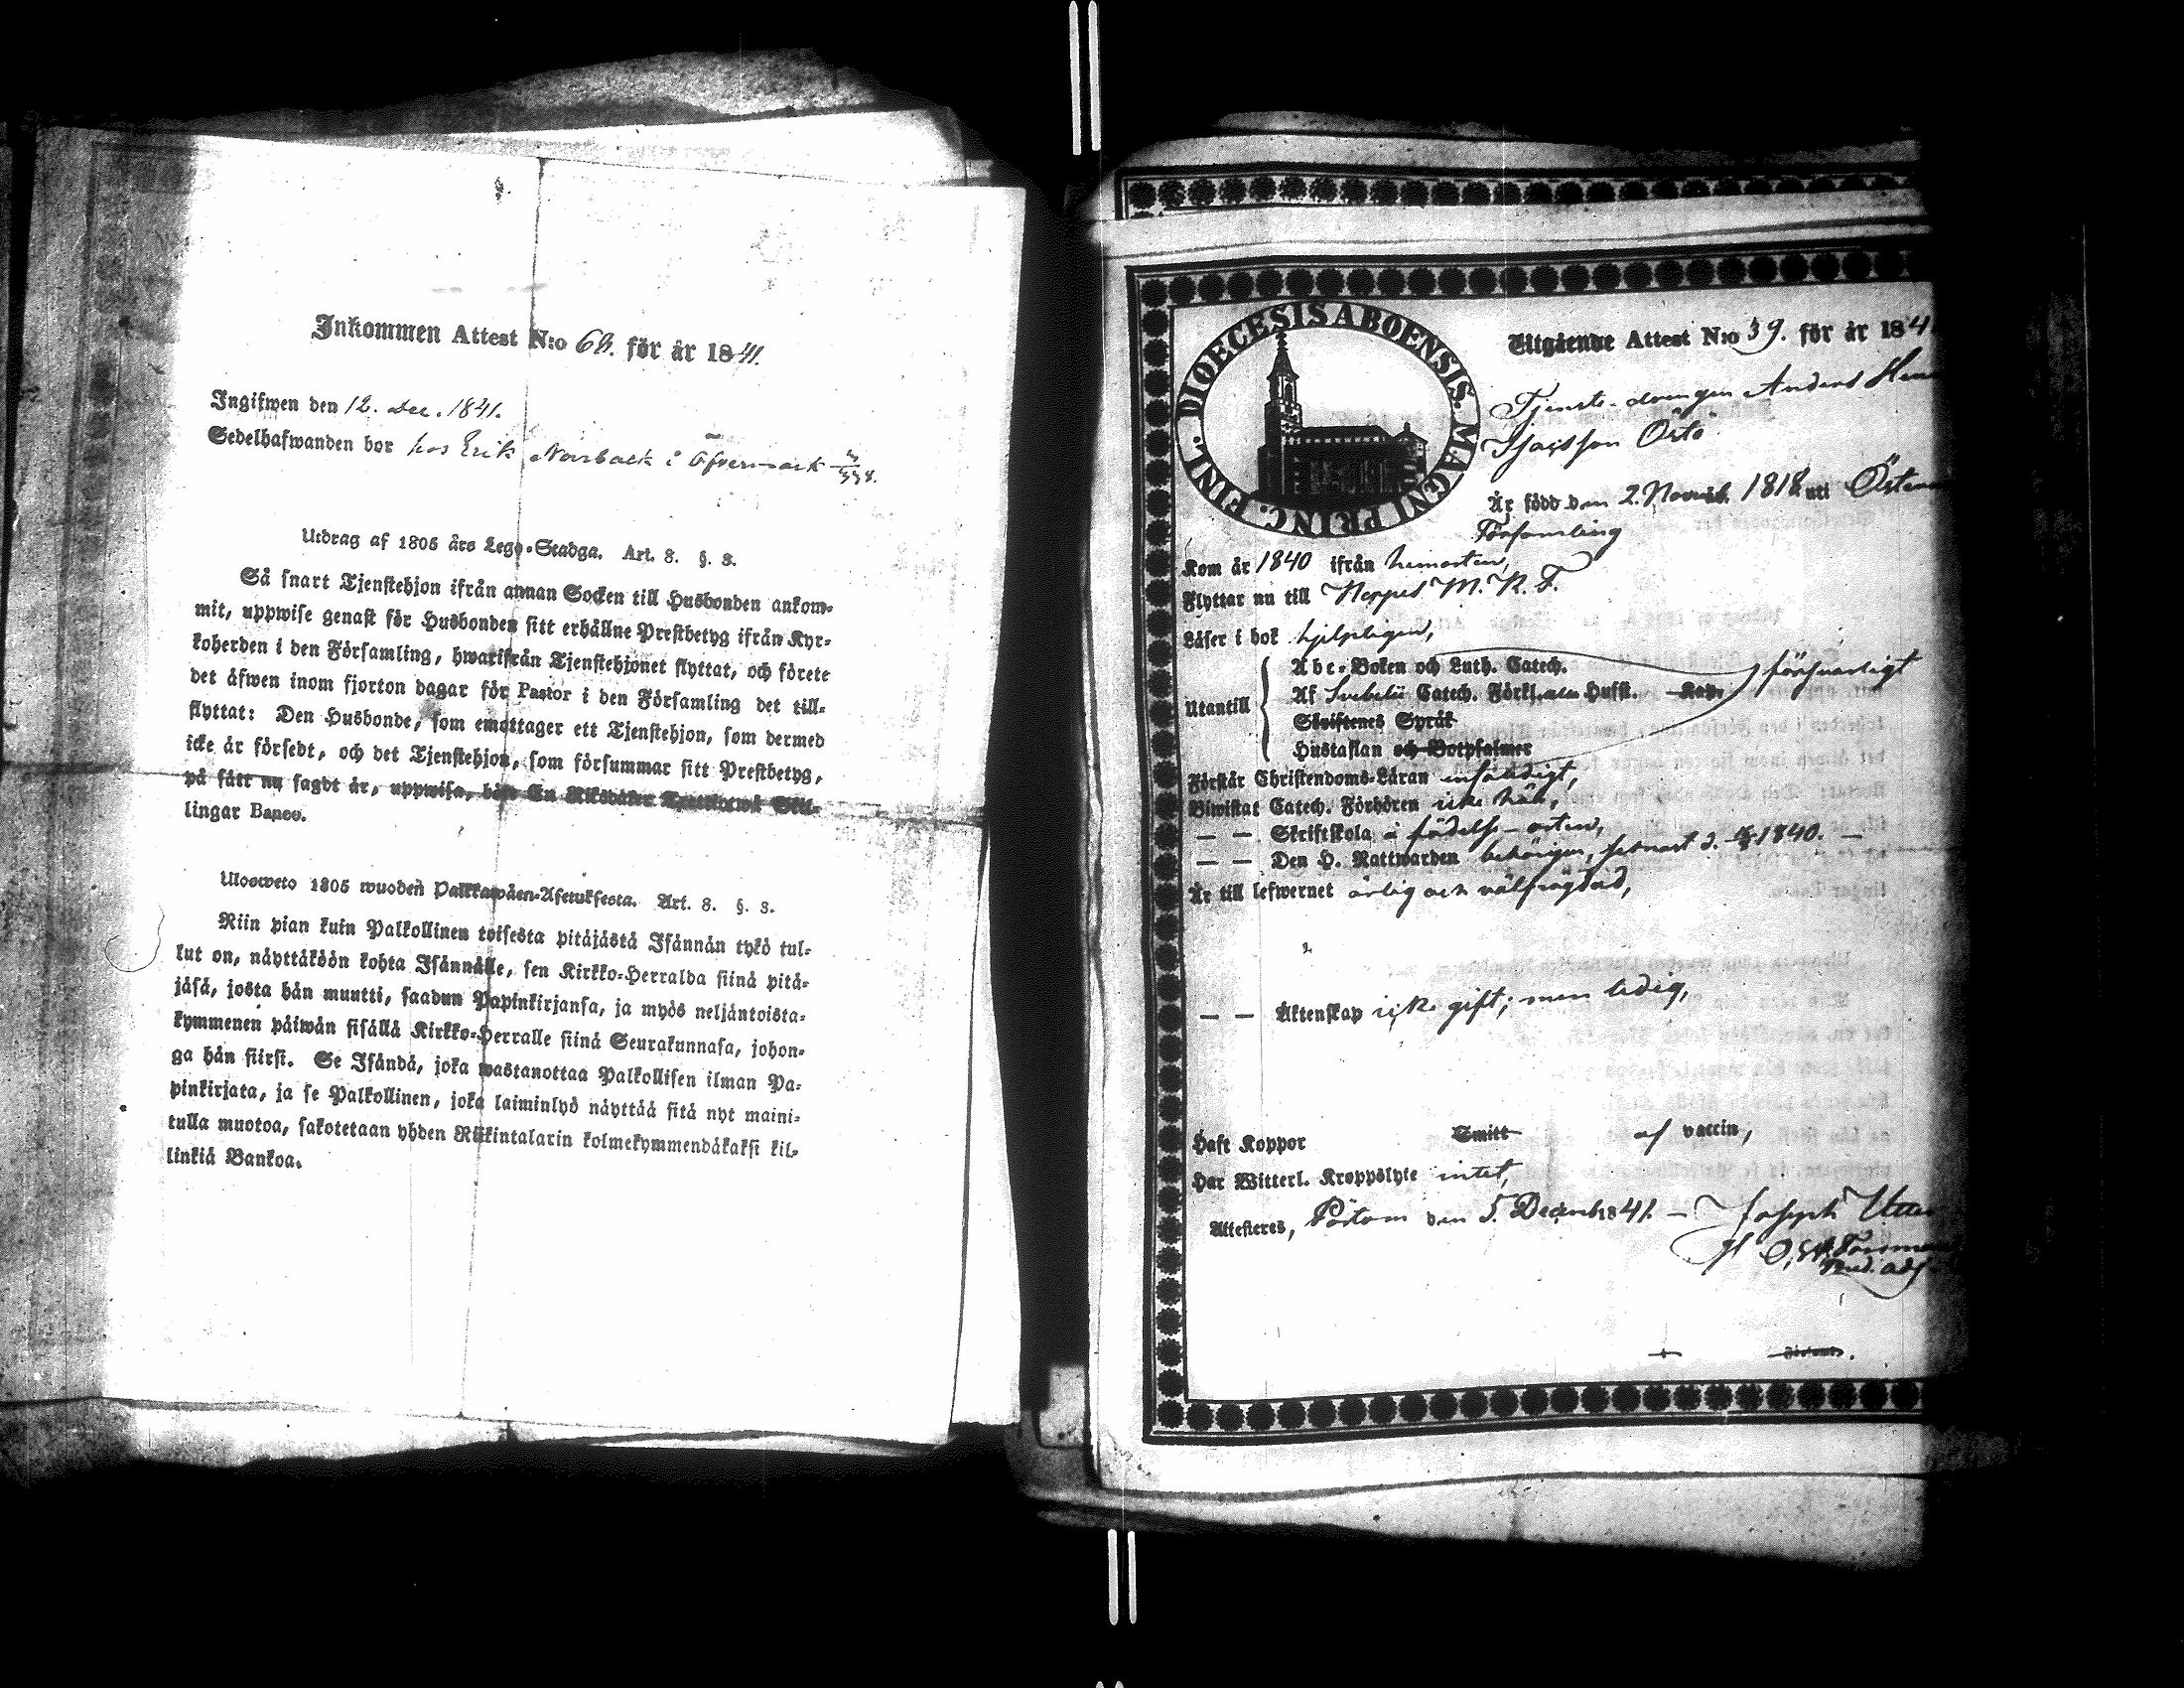 Inkommen Attest N:o 68. för år 1841.
Ingifwen den 12. Dec. 1841.
Sedelhafwanden bor hos Erik Norrback i Öfvermark
Utdrag af 1805 års Lego-Stadga. Art. 8. §. 3.
Så snart Tjenstehjon ifrån annan Socken till Husbonden ankom-
mit, uppwise genast för Husbonden sitt erhållne Prestbetyg ifrån Kyr-
koherden i den Församling, hwarifrån Tjenstehjonet flyttat, och förete
det äfwen inom fjorton dagar för Pastor i den Församling det till-
flyttat: Den Husbonde, som emottager ett Tjenstehjon, som dermed
icke är försedt, och det Tjenstehjon, som försummar sitt Prestbetyg,
på sätt nu sagdt är, uppwisa, böte En Riksdaler Trettiotwå Skil-
lingar Banco.
Ulosweto 1805 wuoden Palkkawäen-Asetuksesta. Art. 8. §. 3.
Niin pian kuin Palkollinen toisesta pitäjästä Isännän tykö tul-
lut on, näyttäköön kohta Isännälle, sen Kirkko-Herralda siinä pitä-
jäsä, josta hän muutti, saadun Papinkirjansa, ja myös neljäntoista-
kymmenen päiwän sisällä Kirkko-Herralle siinä Seurakunnasa, johon-
ga hän siirsi. Se Isändä, joka wastanottaa Palkollisen ilman Pa-
pinkirjata, ja se Palkollinen, joka laiminlyö näyttää sitä nyt maini-
tulla muotoa, sakotetaan yhden Riikintalarin kolmekymmendäkaksi kil-
linkiä Bankoa.
DIOECESIS ABOENSIS. MAGNI PRINC. FINL.
Utgående Attest N:o 39. för år 184
Tjenste-drengen Anders
Isacsson Östö
Är född den 2. Novemb. 1818 uti
Församling
Kom år 1840 ifrån hemorten,
Flyttar nu till Nerpes M. K. F.
Läser i bok hjelpligen,
Utantill
Abc-Boken och Luth. Catech.
Af Svebelii Catech. Förkl. Husst. Kap. försvarligt
Skriftenes Språk
Hustaflan och Botpsalmer
Förstår Christendoms-Läran enfaldigt,
Biwistat Catech. Förhören icke här,
— — Skriftskola å födelse-orten,
— — Den H. Nattwarden behörigen, senast d. 1840. —
Är till lefwernet ärlig och välfrägdad,
— — Äktenskap icke gift; men ledig,
Haft Koppor Smitt af vaccin,
Har Witterl. Kroppslyte intet,
Attesteras, Pörtom den 5. Decemb. 1841. — Joseph